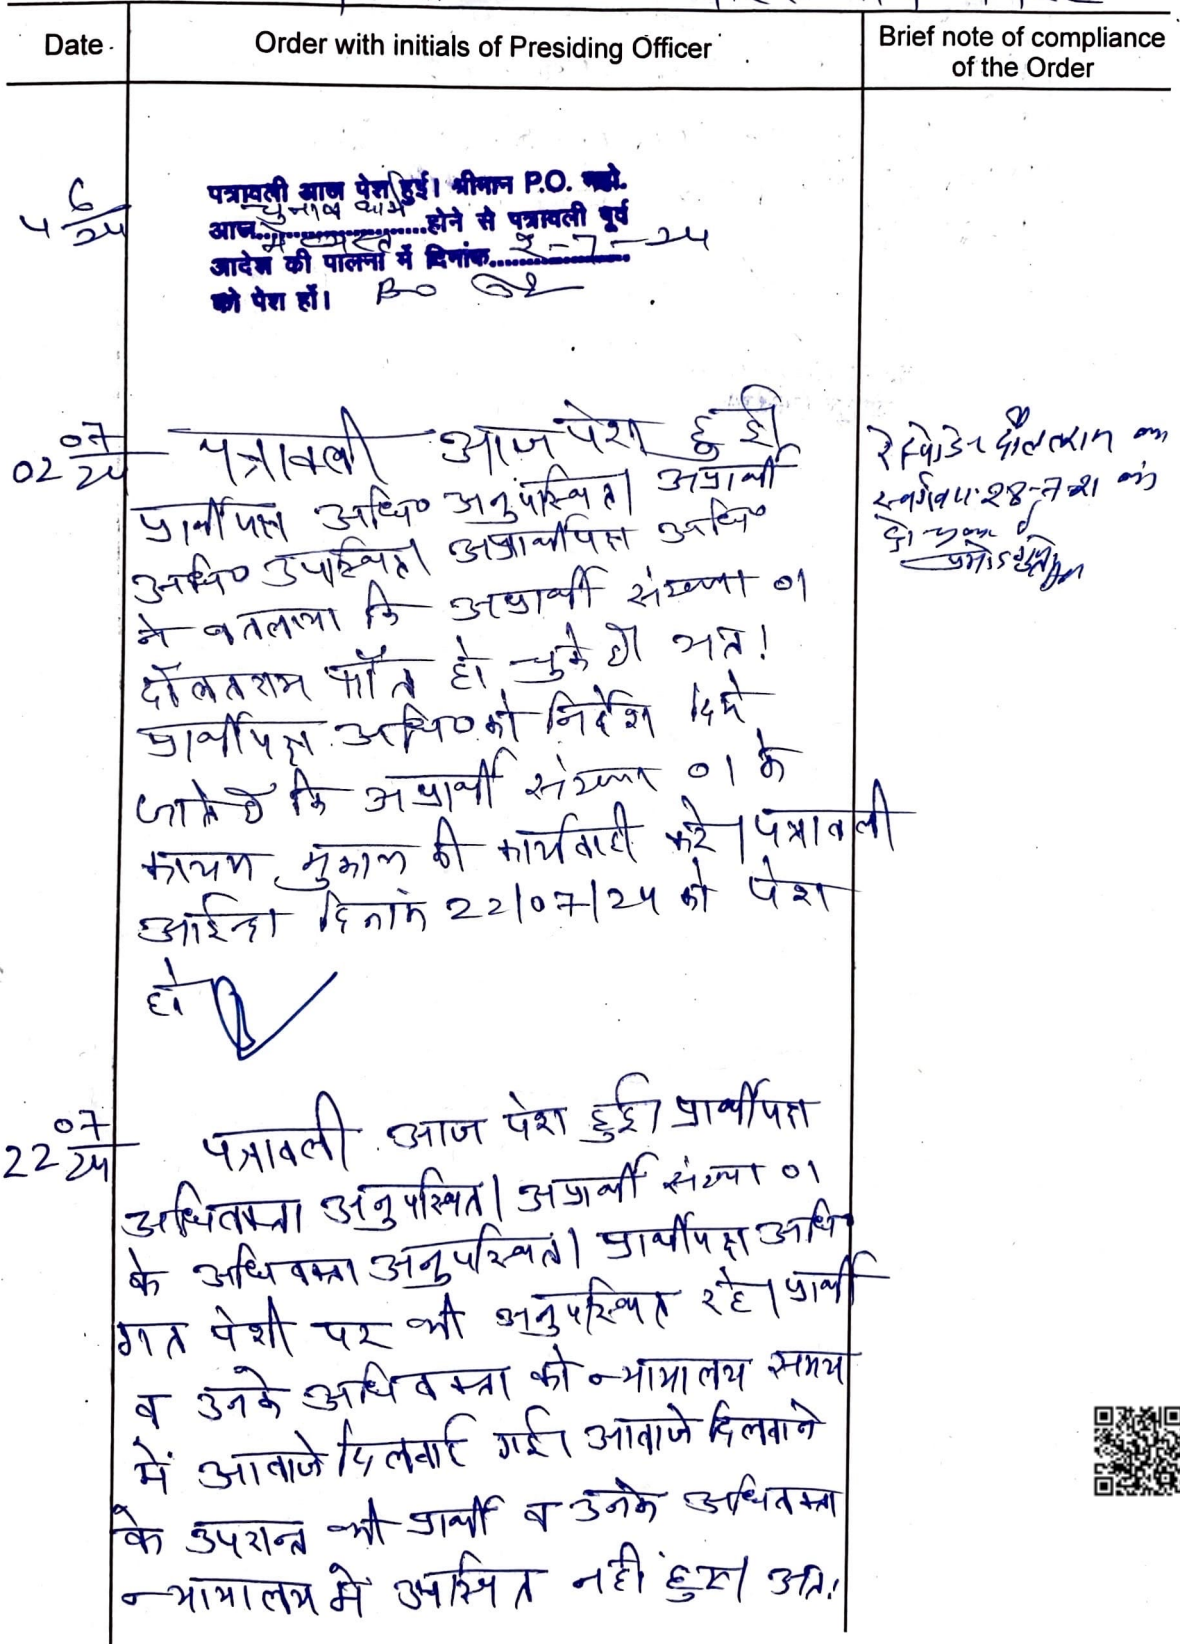 Date
Order with initials of Presiding Officer
Brief note of compliance
of the Order
4 6/24
पत्रावली आज पेश हुई। श्रीमान P.O. महो.
आज चुनाव कार्य
में व्यस्त होने से पत्रावली पूर्व
आदेश की पालना में दिनांक 2-7-24
को पेश हों।
02 07/24
पत्रावली आज पेश हुई
प्रार्थीपक्ष अधि० अनुपस्थित। अप्रार्थी
अधि० उपस्थित। अप्रार्थीपक्ष अधि०
ने बतलाया कि अप्रार्थी संख्या 01
दौलतराम फौत हो चुके है। अत:
प्रार्थीपक्ष अधि० को निर्देश दिये
जाते है कि अप्रार्थी संख्या 01 के
कायम मुकाम की कार्यवाही करे। पत्रावली
आईन्दा दिनांक 22/07/24 को पेश
हो
रेस्पोडेन्ट दौलतराम का
स्वर्गवास 28-7-21 को
हो चुका है
22 07/24
पत्रावली आज पेश हुई। प्रार्थीपक्ष
अधिवक्ता अनुपस्थित। अप्रार्थी संख्या 01
के अधिवक्ता अनुपस्थित। प्रार्थीपक्ष अधि
गत पेशी पर भी अनुपस्थित रहे। प्रार्थी
व उनके अधिवक्ता को न्यायालय समय
में आवाजे दिलवाई गई। आवाजे दिलवाने
के उपरान्त भी प्रार्थी व उनके अधिवक्ता
न्यायालय में उपस्थित नही हुए। अत: